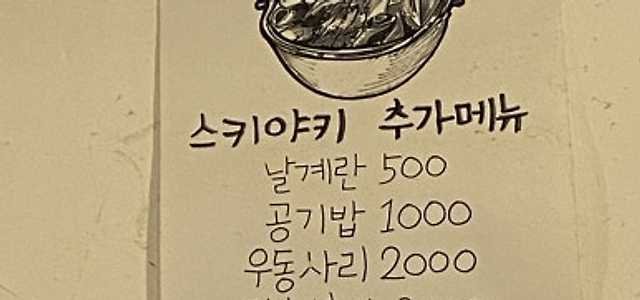 스키야키 추가메뉴
날계란 500
공기밥 1000
우동사리 2000